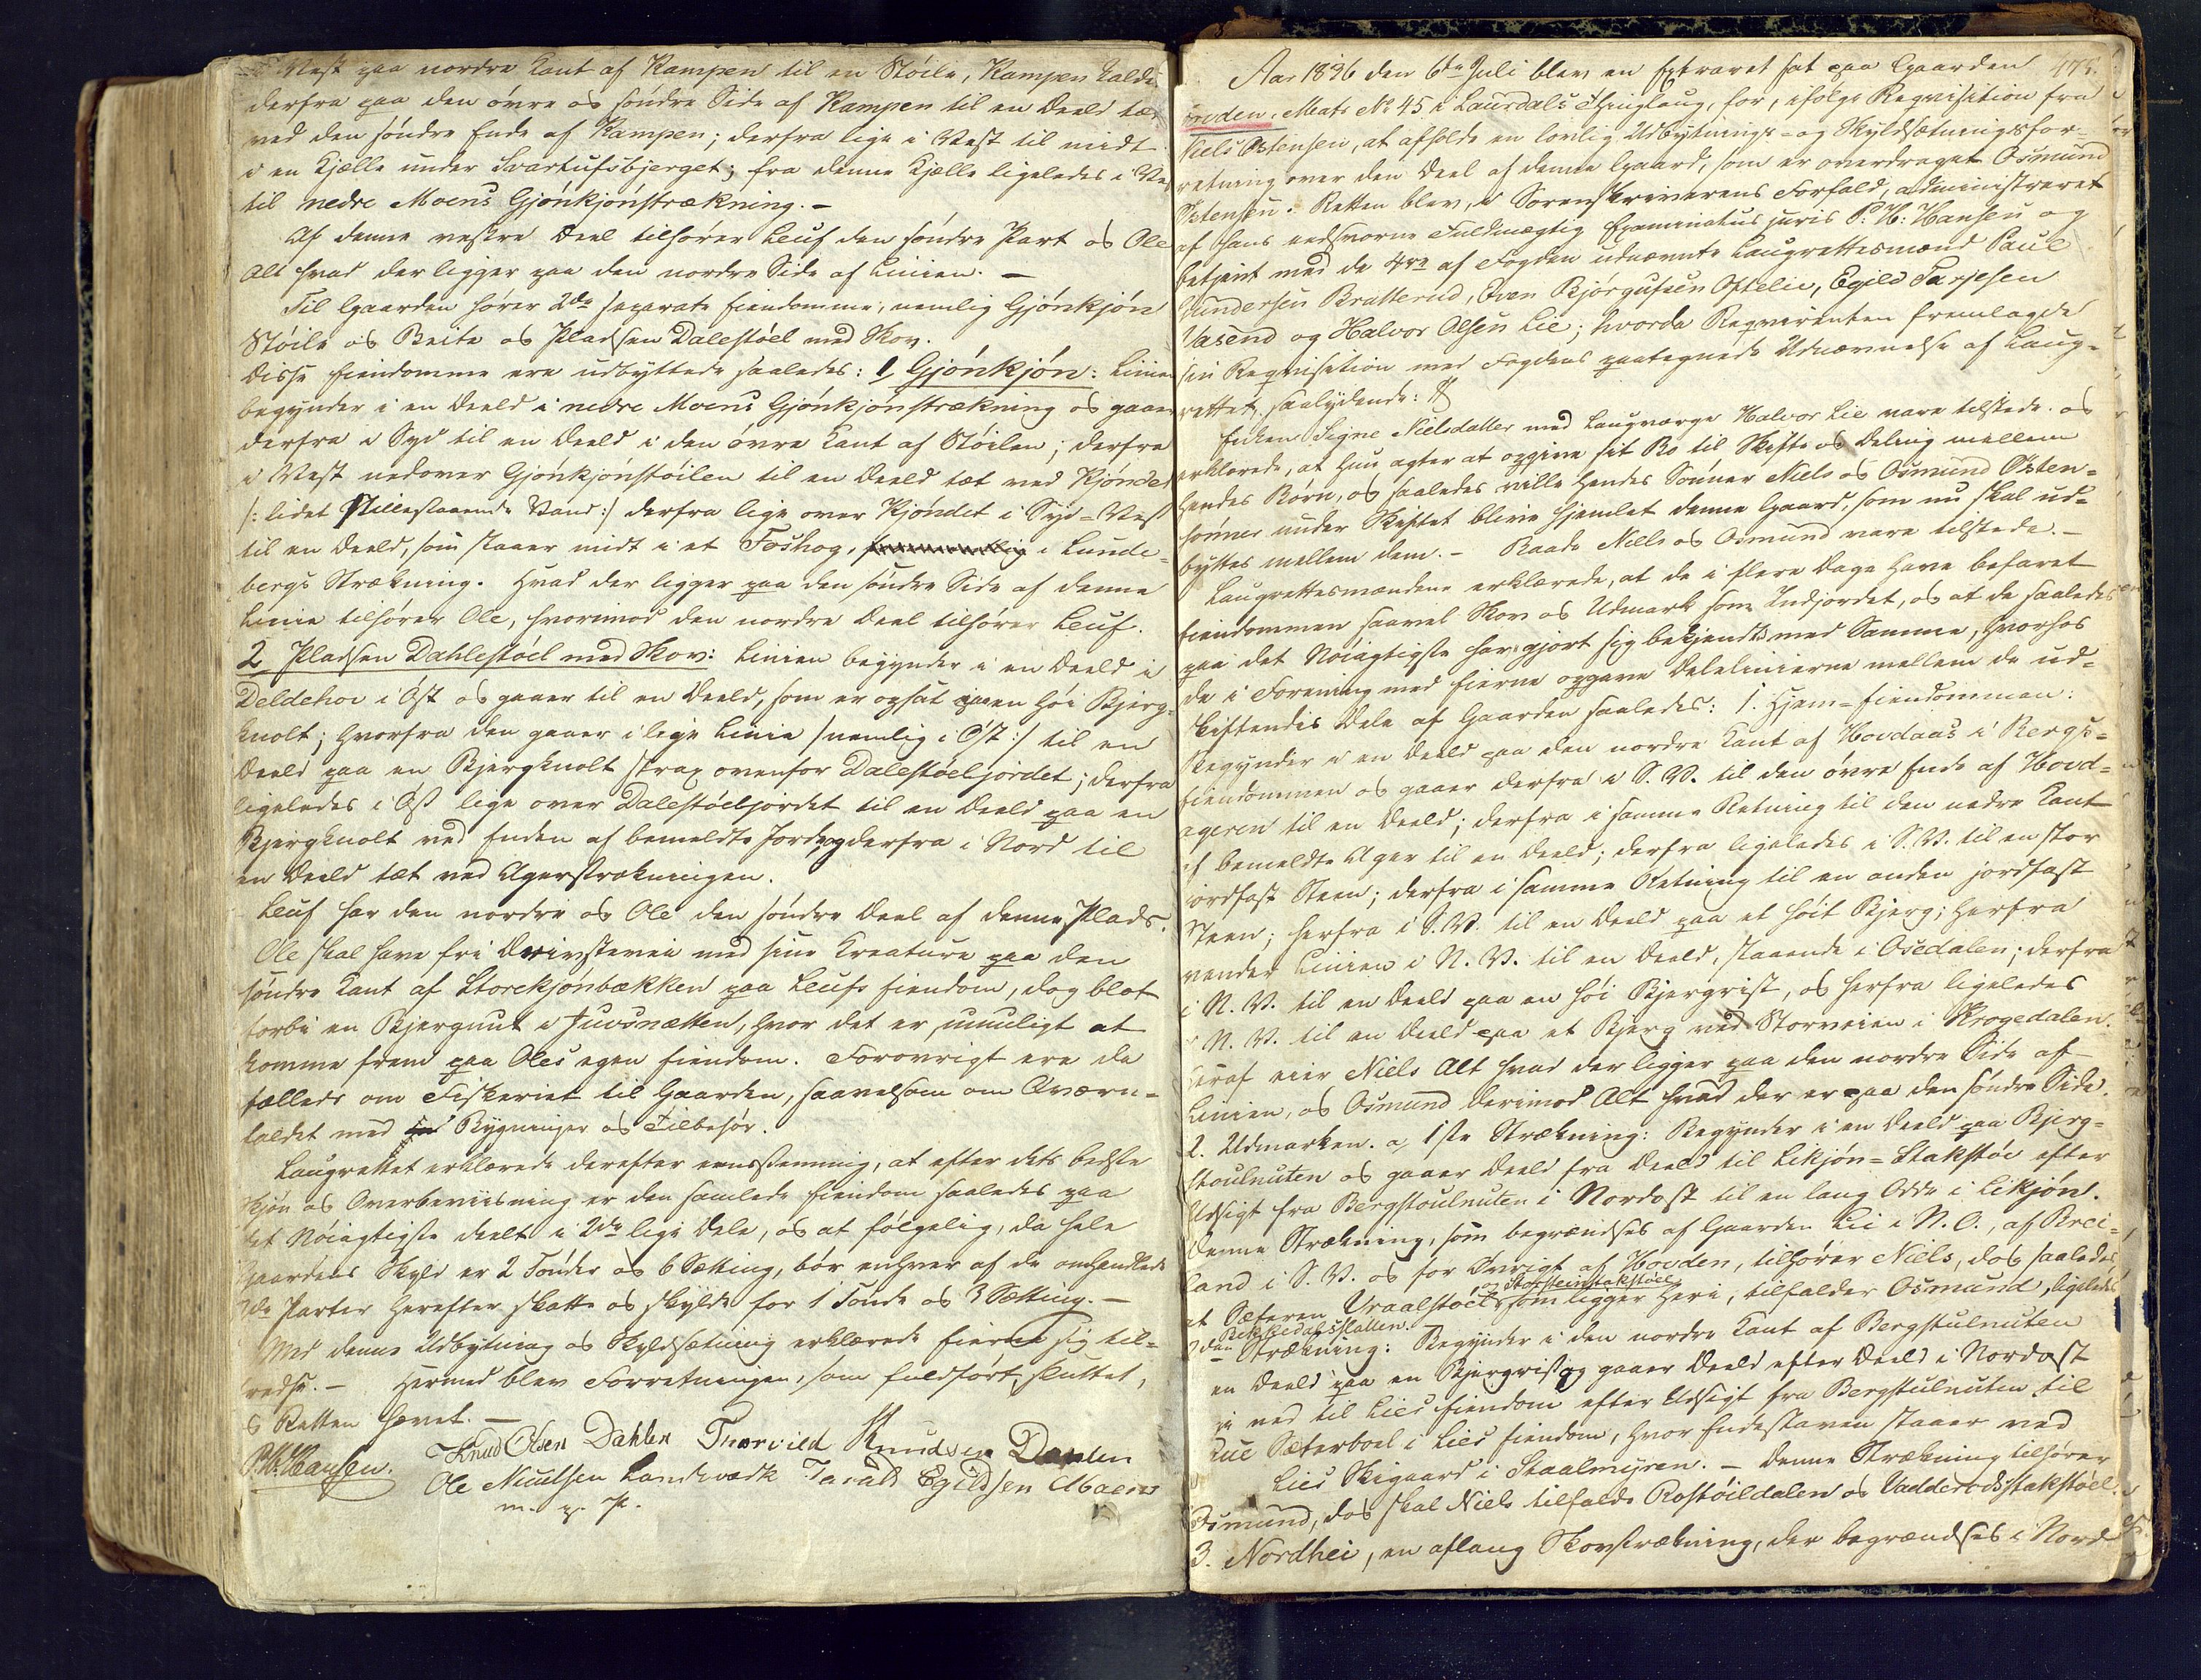 Vest paa nordre Kant af Kampen til en Støile, Kampen kaldt
derfra paa den øvre og søndre Side af Kampen til en Deeld tæt
ved den søndre Ende af Kampen; derfra lige i Vest til midt
i en Kjælle under Svartufsbjerget; fra denne Kjælle ligeledes i Vest
til nedre Moens Gjónkjónstrækning. -
Af denne vestre Deel tilhører Leuf den søndre Part og Ole
Alt hvad der ligger paa den nordre Side af Linien. -
Til Gaarden hører 2de separate Eiendomme, nemlig Gjónkjón
Støile og Beite og Pladsen Dalestøel med Skov.
Disse Eiendomme ere udbyttede saaledes: 1, Gjónkjón: Linien
begynder i en Deeld i nedre Moens Gjónkjónstrækning og gaaer
derfra i Syd til en Deeld i den øvre Kant af Støilen; derfra
i Vest nedover Gjónkjónstøilen til en Deeld tæt ved Kjóndet
/: lidet Stillestaaende Vand :/ derfra lige over Kjóndet i Syd-Vest
til en Deeld, som staaer midt i et Foshog, i Lunde-
bergs Strækning. Hvad der ligger paa den søndre Side af denne
Linie tilhører Ole, hvorimod den nordre Deel tilhører Leuf.
2 Pladsen Dahlestóel med Skov: Linien begynder i en Deeld i
Deldehoi i Øst og gaaer til en Deeld, som er opsat paa en høi Bjerg-
knolt; hvorfra den gaaer i lige Linie /nemlig i Øst :/ til en
Deeld paa en Bjergknolt strax ovenfor Dalestóeljordet; derfra
ligeledes i Øst lige over Dalestóeljordet til en Deeld paa en
Bjergknolt ved Enden af bemeldte Jord, og derfra i Nord til
en Deeld tæt ved Agerstrækningen.
Leuf har den nordre og Ole den søndre Deel af denne Plads.
Ole skal have fri Drivsteveie med sine Kreature paa den
søndre Kant af Storekjónbækken paa Leufs Eiendom, dog blot
forbi en Bjergnut i Juvsnætten, hvor det er umuligt at
komme frem paa Oles egen Eiendom. Forøvrigt ere de
fælleds om Fiskeriet til Gaarden, saavelsom om Qværn-
faldet med Bygninger og Tilbehør.
Laugrettet erklærede derefter eensstemmig, at efter dets bedste
Skjøn og Overbeviisning er den samlede Eiendom saaledes paa
det Nøiagtigste deelt i 2de lige Dele, og at følgelig, da hele
Gaardens Skyld er 2 Tønder og 6 Sætting, bør enhver af de omhandlede
2de Parter herefter skatte og skylde for 1 Tønde og 3 Sætting. -
Med denne Udbytning og Skyldsætning erklærede Eierne sig til-
fredse. - Hermed blev Forretningen, som fuldført, sluttet,
og Retten hævet. -
P.H. Hansen. Knud Olsen Dahlen Thorvild Knudsen Dahlen
Ole Nicolsen Landsværk Tarald Egildsen Moen
m. p. P.
Aar 1836 den 6te Juli blev en Extraret sat paa Gaarden 475.
Hovden, Matr. No 45 i Laurdals Thinglaug, for, ifølge Reqvisition fra
Niels Østensen, at afholde en lovlig Udbytnings- og Skyldsætningsfor-
retning over den Deel af denne Gaard, som er overdraget Osmund
Østensen. Retten blev, i Sorenskriverens Forfald, administreret
af hans eedsvorne Fuldmægtig Examinatus juris P. H. Hansen og
betjent med de 4re af Fogden udnævnte Laugrettesmænd Paul
Gundersen Bratterud, Even Bjørgufsen Oftelie, Egild Tarjesen
Vasend og Halvor Olsen Lie; hvorda Reqvirenten fremlagde
sin Reqvisition med Fogdens paategnede Udnævnelse af Laug-
rettet, saalydende:
Enken Signe Nielsdatter med Laugværge Halvor Lie vare tilstede og
erklærede, at hun agter at opgive sit Bo til Skifte og Deling mellem
hendes Børn, og saaledes ville hendes Sønner Niels og Osmund Østen-
sønner under Skiftet blive hjemlet denne Gaard, som nu skal ud-
byttes mellem dem. - Baade Niels og Osmund vare tilstede. -
Laugrettesmændene erklærede, at de i flere Dage have befaret
Eiendommen saavel Skov og Udmark som Indjordet, og at de saaledes
paa det Nøiagtigste har gjort sig bekjendte med Samme, hvorhos
de i Forening med Eierne opgave Delelinierne mellem de ud-
skiftendes Dele af Gaarden saaledes: 1. Hjem-Eiendommen:
Begynder i en Deeld paa den nordre Kant af Hovdaas i Bergs-
Eiendommen og gaaer derfra i S. V. til den øvre Ende af Hovd-
ageren til en Deeld; derfra i samme Retning til den nedre Kant
af bemeldte Ager til en Deeld; derfra ligeledes i S. V. til en stor
jordfast Steen; derfra i samme Retning til en anden jordfast
Steen; herfra i S. V. til en Deeld paa et høit Bjerg; herfra
vender Linien i N. V. til en Deeld, staaende i Osedalen; derfra
i N. V. til en Deeld paa en høi Bjergrist, og herfra ligeledes
i N. V. til en Deeld paa et Bjerg ved Storveien i Krogedalen.
Heraf eier Niels Alt hvad der ligger paa den nordre Side af
Linien, og Osmund derimod Alt hvad der er paa den søndre Side.
2. Udmarken. a, 1ste Strækning: Begynder i en Deeld paa Bjerg-
stoulnuten og gaaer Deeld fra Deeld til Likjón-Stakstóe efter
Udsigt fra Bergstoulnuten i Nordost til en lang Odde i Likjón.
Denne Strækning, som begrændses af Gaarden Lii i N. O., af Brei-
land i S. V. og for Øvrigt af Hovden, tilhører Niels, dog saaledes
og Storsteinstakstóel
at Sæteren Vraalstóel som ligger heri, tilfalder Osmund, ligeledes
2den Strækning: Begynder i den nordre Kant af Bergstulnuten
en Deeld paa en Bjergrist og gaaer Deeld efter Deeld i Nordost
ned til Lies Eiendom efter Udsigt fra Bergstulnuten til
Sæterboel i Lies Eiendom, hvor Endestaven staaer ved
Lies Skigaard i Staalmyren. - Denne Strækning tilhører
Osmund, dog skal Niels tilfalde Rostóildalen og Vadderodsstakstóel.
3. Nordhei, en aflang Skovstrækning, der begrændses i Nord